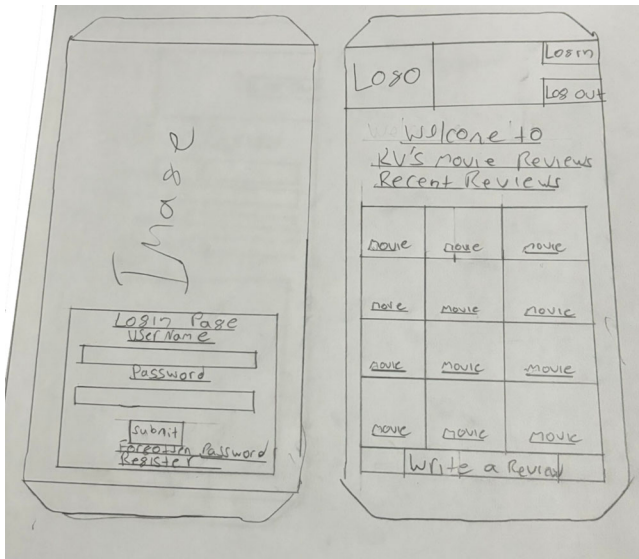 Image
Login Page
UserName
Password
Submit
Forgotten Password
Register
Logo
Login
Log out
Welcone to
KV's Movie Reviews
Recent Reviews
movie movie movie
movie movie movie
movie movie movie
movie movie movie
Write a Review